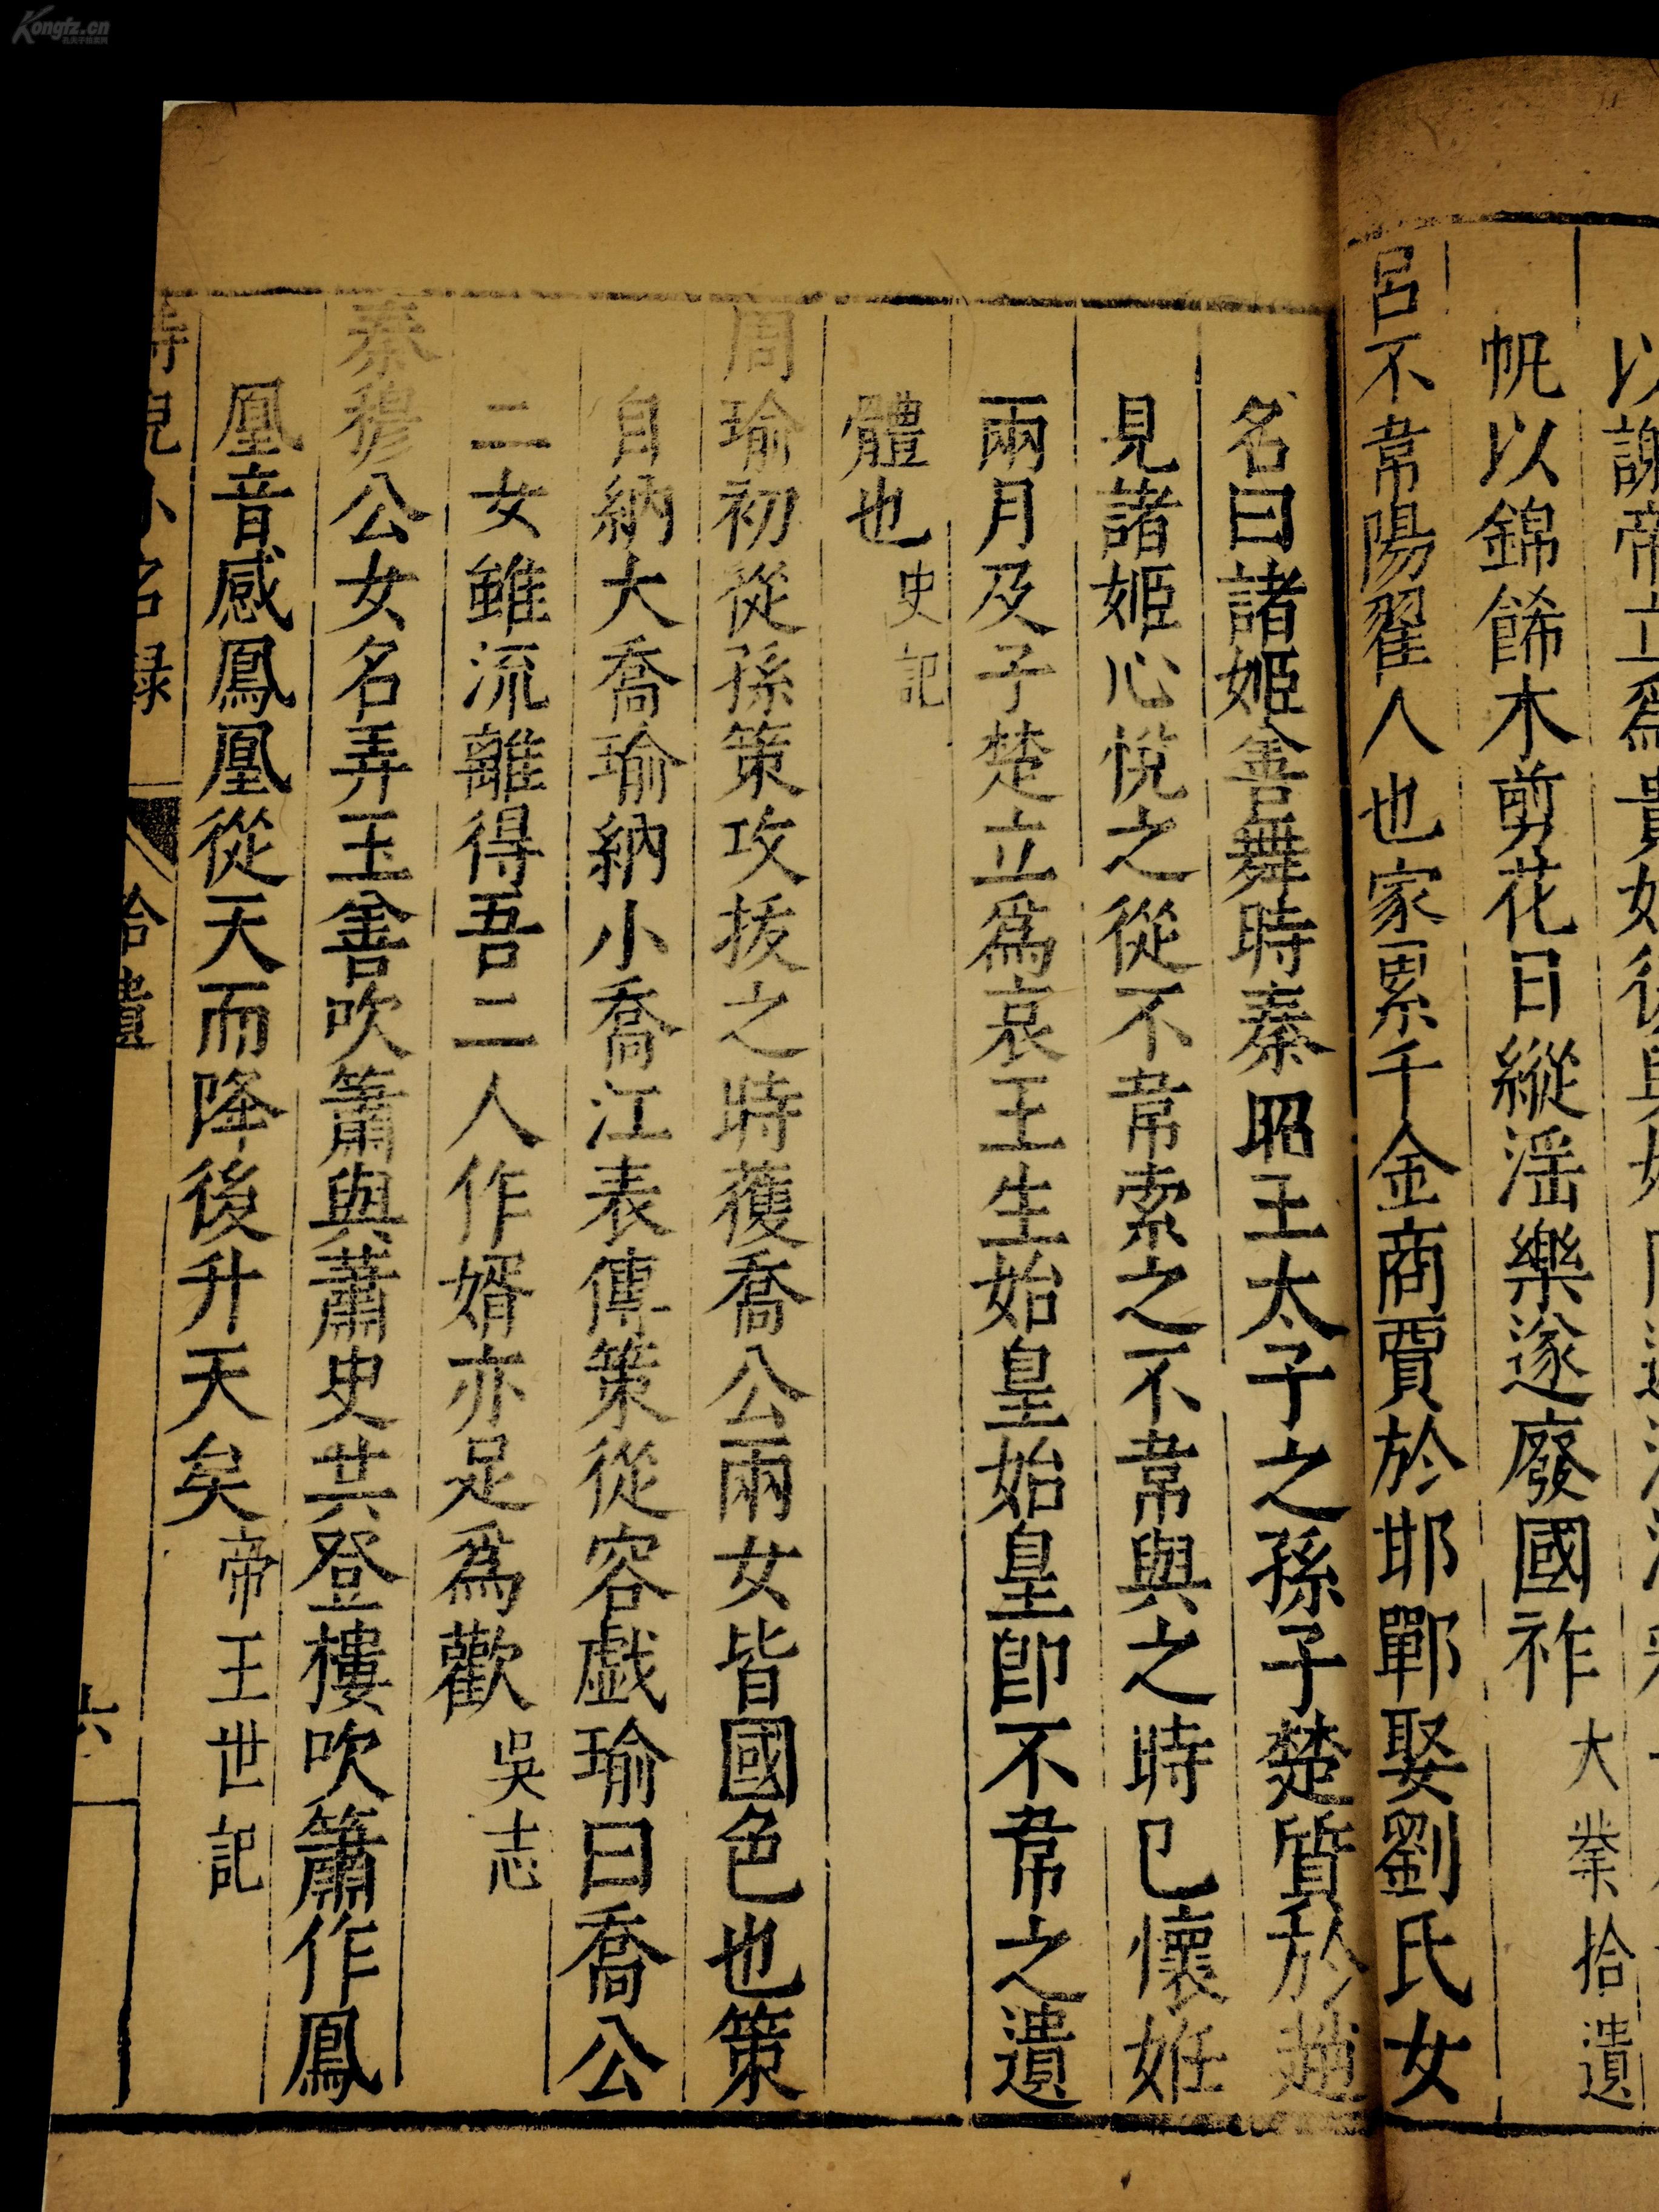 帆以錦餙木剪花日縱滛樂遂廢國祚大業拾遺
呂不韋陽翟人也家累千金商賈於邯鄲娶劉氏女
名曰諸姬善舞時秦昭王太子之孫子楚質於趙
見諸姬心悅之從不韋索之不韋與之時已懷姙
兩月及子楚立爲哀王生始皇始皇卽不韋之遺
體也史記
周瑜初從孫策攻拔之時獲喬公兩女皆國色也策
自納大喬瑜納小喬江表傳策從容戯瑜曰喬公
二女雖流離得吾二人作婿亦足爲歡吳志
秦穆公女名弄玉善吹簫與蕭史共登樓吹簫作鳳
凰音感鳳凰從天而降後升天矣帝王世記
侍兒小名録 拾遺 六
Kongfz.cn